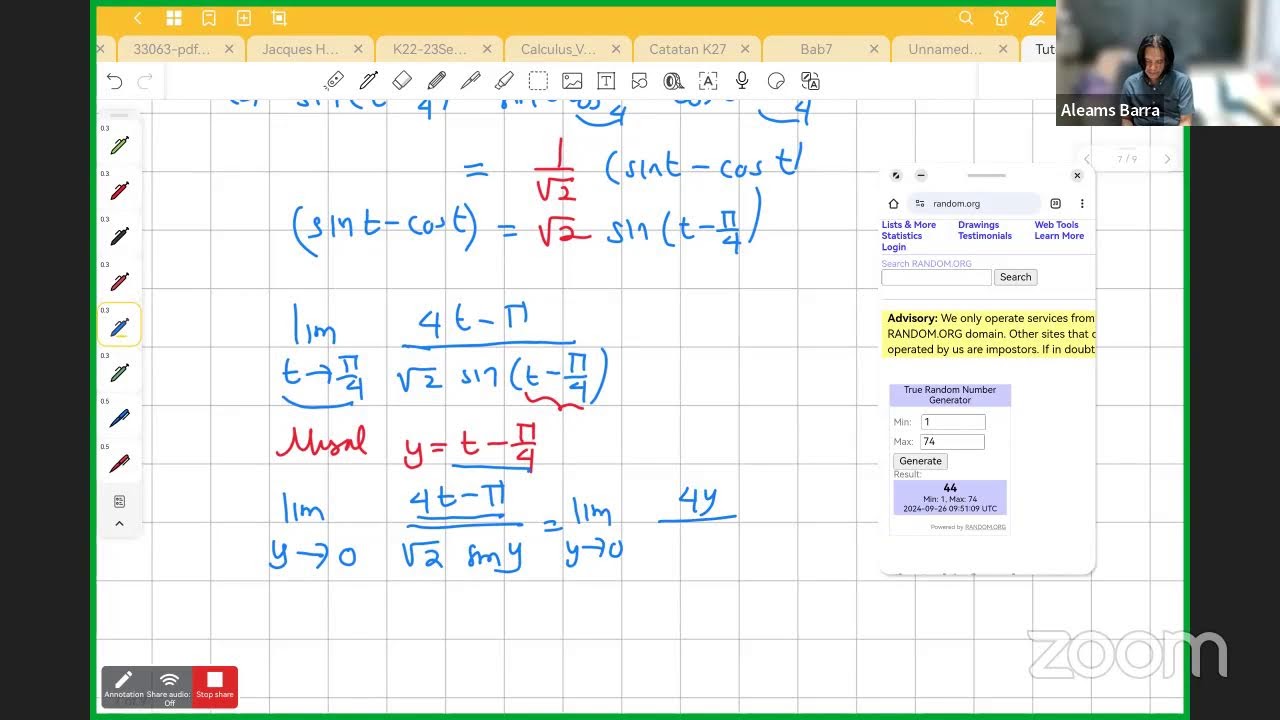 33063-pdf...
Jacques H...
K22-23Se...
Calculus_V...
Catatan K27
Bab7
Unnamed...
Tut
Aleams Barra
= 1/√2 (sin t − cos t)
(sin t − cos t) = √2 sin(t − π/4)
lim t→π/4 4t − π / √2 sin(t − π/4)
Misal y = t − π/4
lim y→0 4t − π / √2 sin y = lim y→0 4y
0.3
0.3
0.3
0.3
0.3
0.3
0.5
0.5
7 / 9
random.org
Lists & More Drawings Web Tools
Statistics Testimonials Learn More
Login
Search RANDOM.ORG
Search
Advisory: We only operate services from
RANDOM.ORG domain. Other sites that c
operated by us are impostors. If in doubt
True Random Number
Generator
Min: 1
Max: 74
Generate
Result:
44
Min: 1, Max: 74
2024-09-26 09:51:09 UTC
Powered by RANDOM.ORG
Annotation Share audio: Off Stop share
zoom